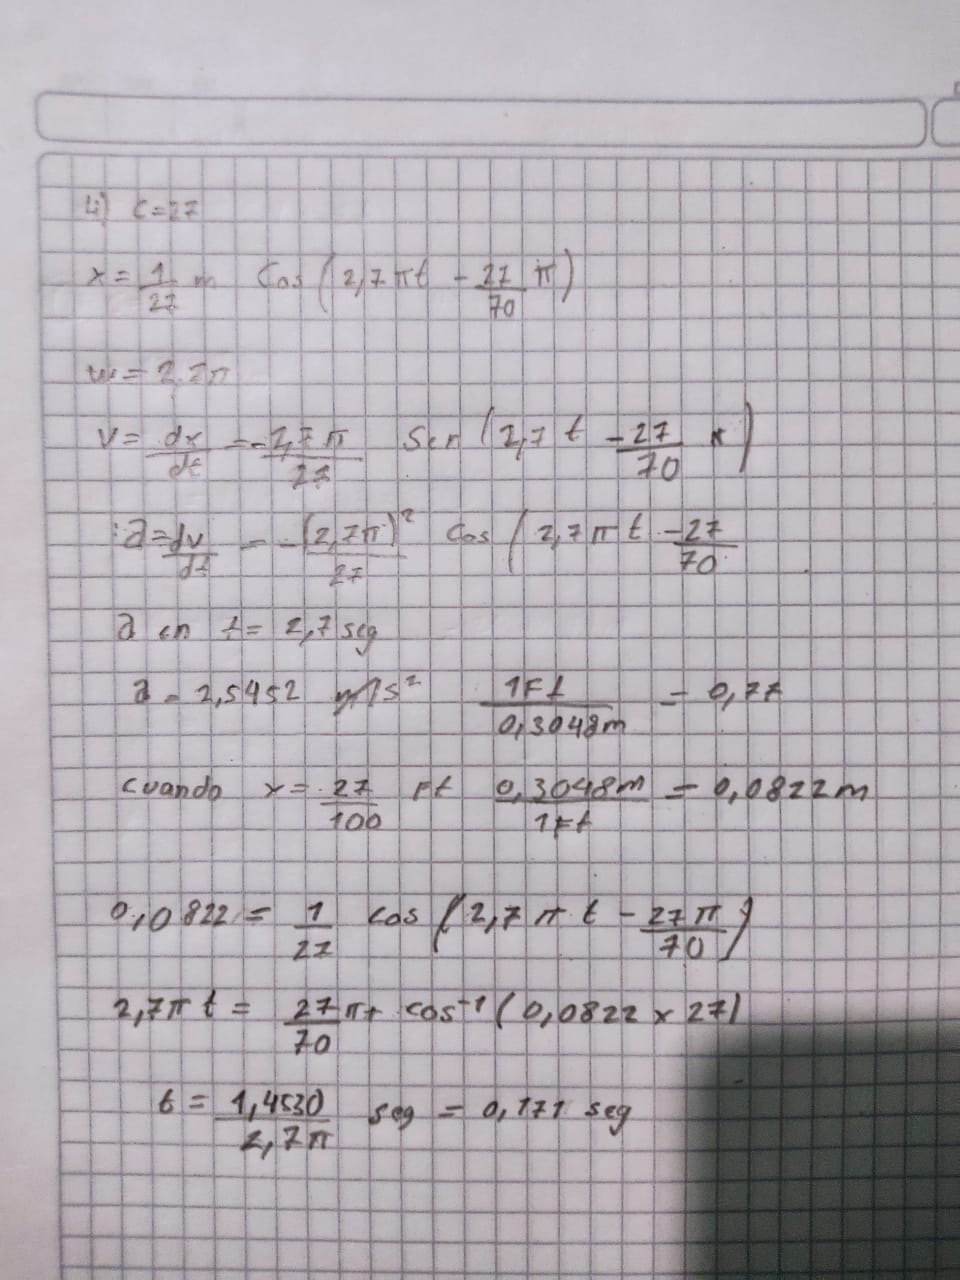 4) C=27
x = 1/27 m Cos (2,7 πt - 27/70 π)
w = 2.7π
V = dx/dt = -2,7 π/27 Sen (2,7 t - 27/70 π)
a = dv/dt = -(2,7π)²/27 Cos (2,7 π t - 27/70
a en t = 2,7 seg
a = 2,5452 m/s² 1Ft/0,3048m = 0,77
cuando x = 27/100 Ft 0,3048m/1Ft = 0,0822m
0,0822 = 1/27 cos (2,7 π t - 27π/70)
2,7π t = 27/70 π + cos⁻¹ (0,0822 x 27)
t = 1,4530/2,7π seg = 0,171 seg